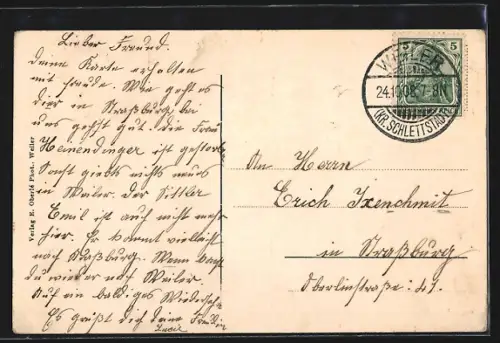 Lieber Freund.
Deine Karte erhalten
mit Freude. Wie geht es
dir in Straßburg bei
uns geht gut. die Frau
ist gestorben
Sonst giebts nichts neues
in Weiler. der Sittler
Emil ist auch nicht mehr
hier. Er kommt vielleicht
nach Straßburg. Wenn
du wieder nach Weiler.
Auf ein baldiges Wiedersehn
Es grüßt dich deine Freundin
Lucie
Verlag E. Oberlé Phot., Weiler
5 5
WEILER
24.10.08. 7-8N
(KR. SCHLETTSTADT)
An Herrn
Erich Ixenchmit
in Straßburg
Oberlinstraße: 41.